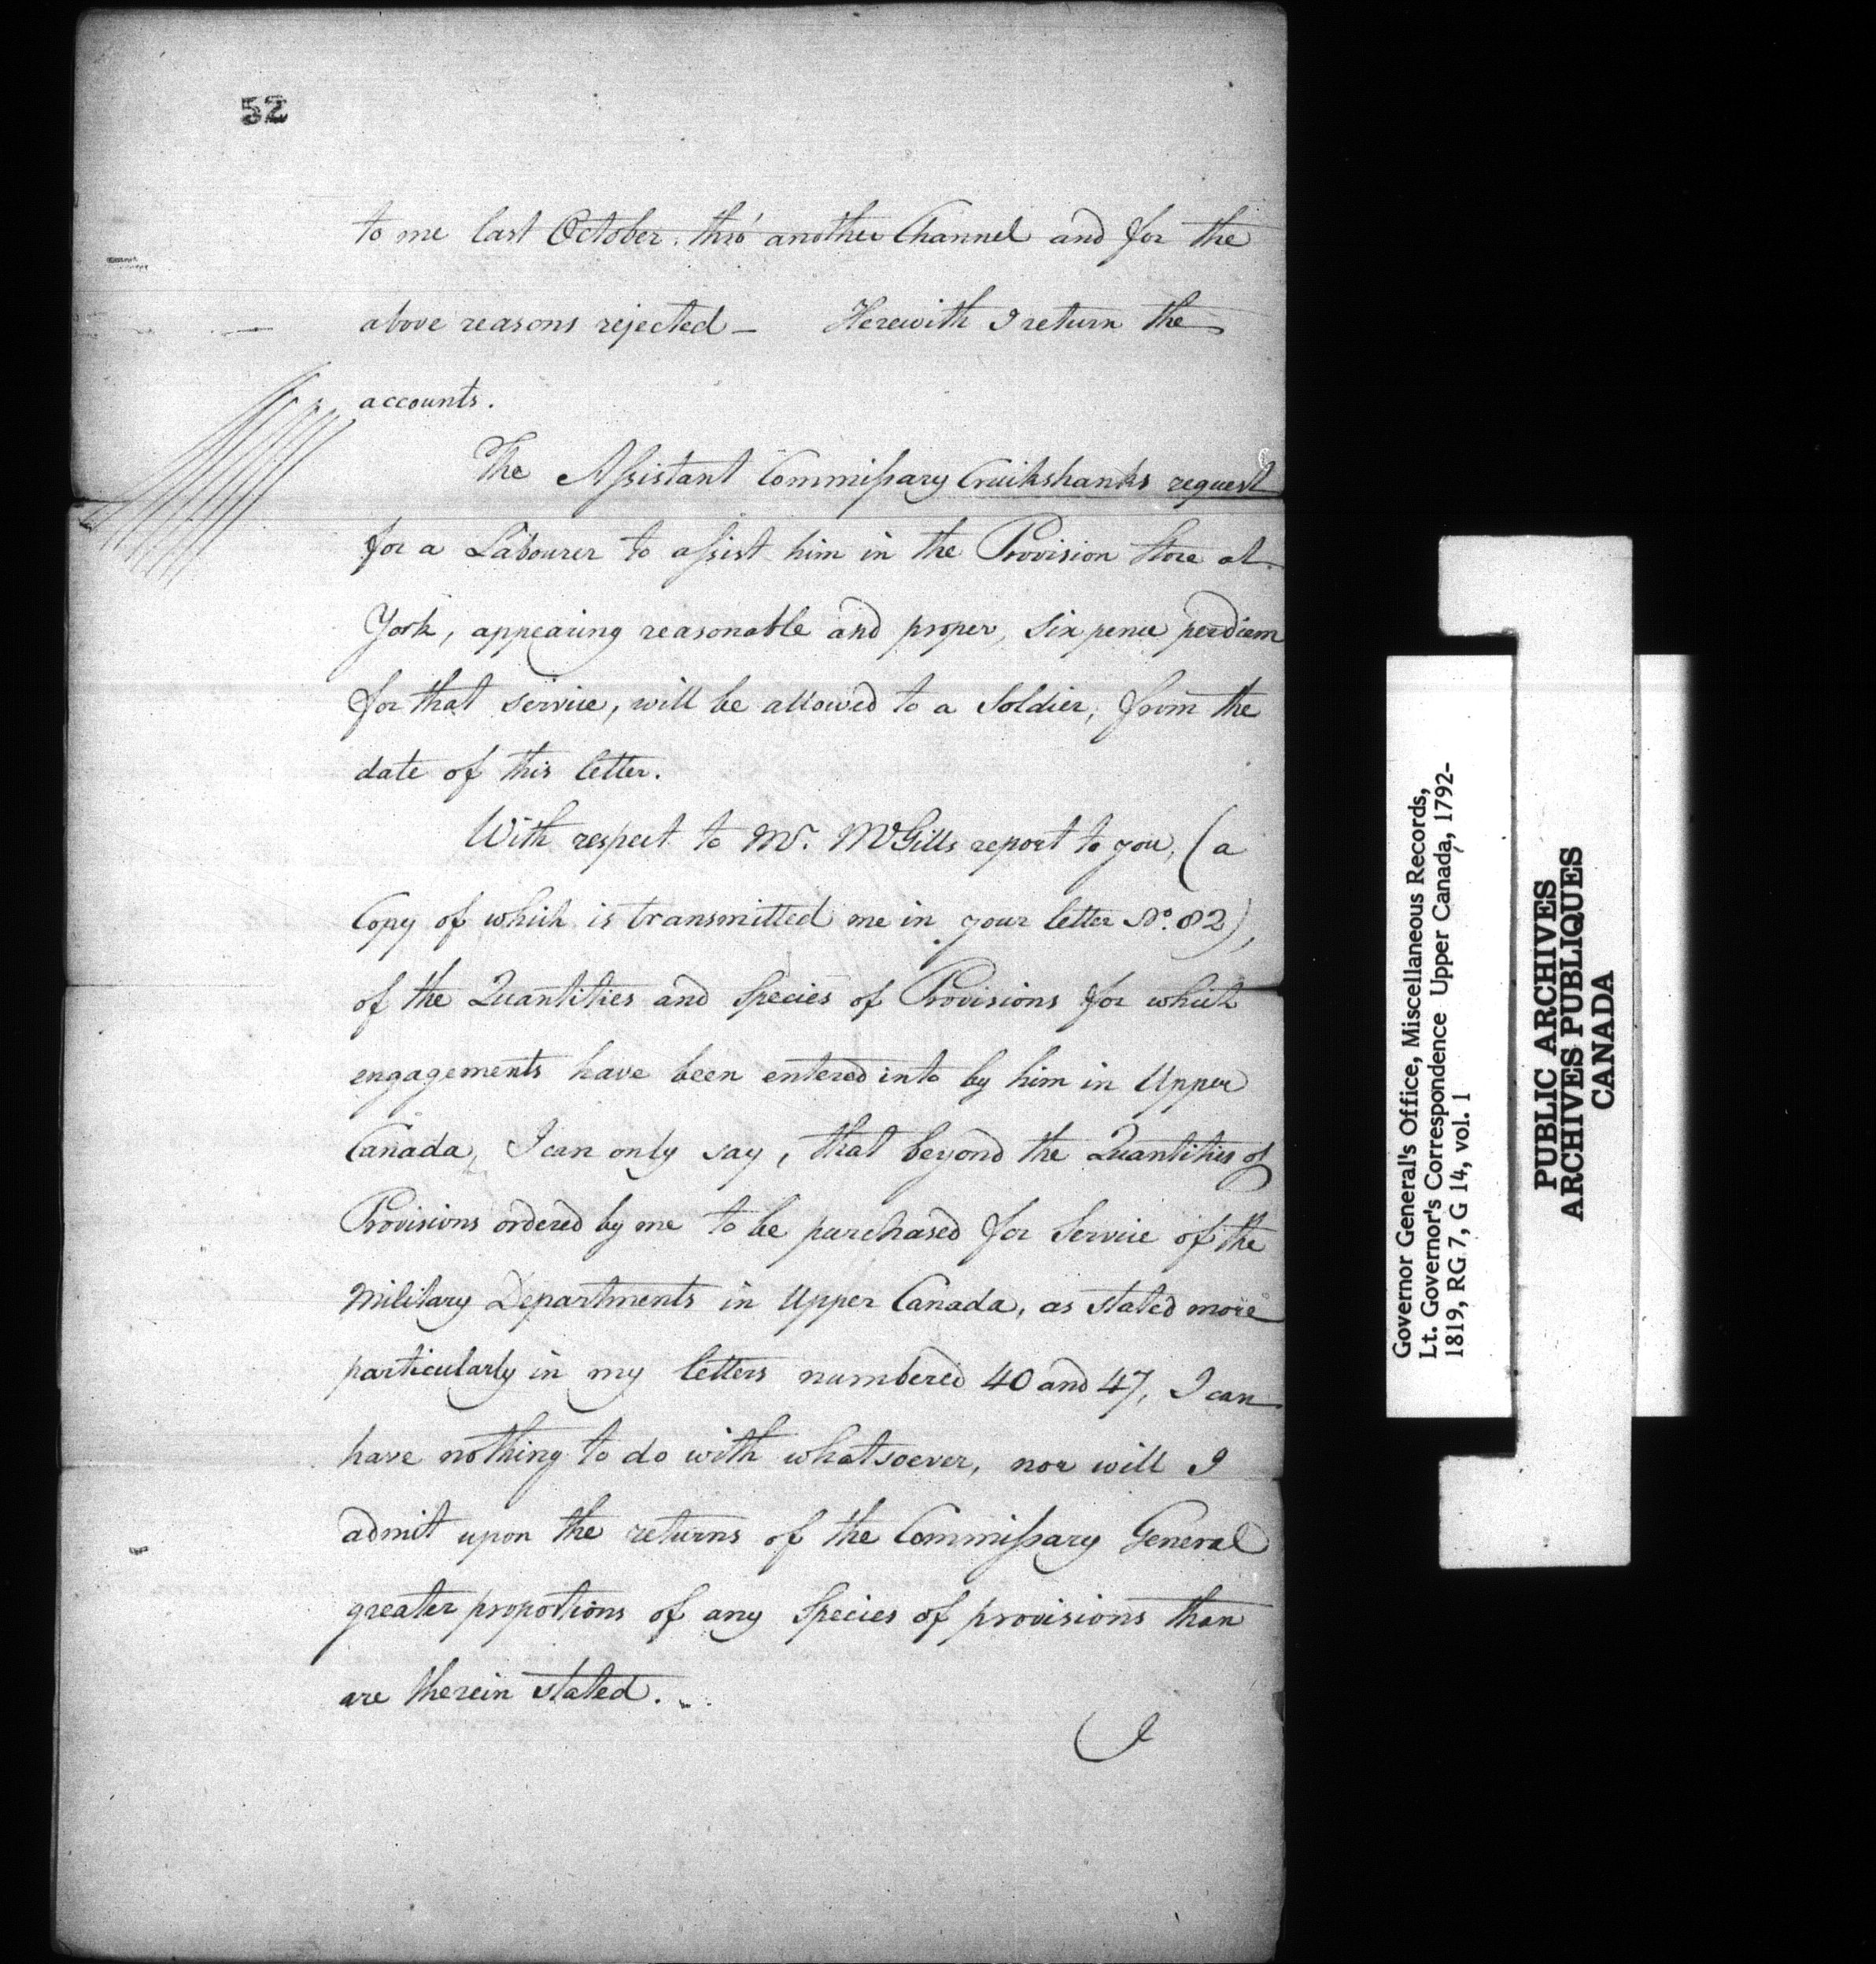 52
to me last October, thro' another Channel and for the
above reasons rejected — Herewith I return the
accounts.
The Assistant Commissary Cruikshanks request
for a Labourer to assist him in the Provision Store at
York, appearing reasonable and proper, six pence per diem
for that service, will be allowed to a Soldier, from the
date of this letter.
With respect to Mr. McGills report to you, (a
Copy of which is transmitted me in your letter No. 82),
of the Quantities and Species of Provisions for which
engagements have been entered into by him in Upper
Canada, I can only say, that beyond the Quantities of
Provisions ordered by me to be purchased for Service of the
Military Departments in Upper Canada, as stated more
particularly in my letters numbered 40 and 47, I can
have nothing to do with whatsoever, nor will I
admit upon the returns of the Commissary General
greater proportions of any Species of provisions than
are therein stated.
I
Governor General's Office, Miscellaneous Records,
Lt. Governor's Correspondence Upper Canada, 1792-
1819, RG 7, G 14, vol. 1
PUBLIC ARCHIVES
ARCHIVES PUBLIQUES
CANADA